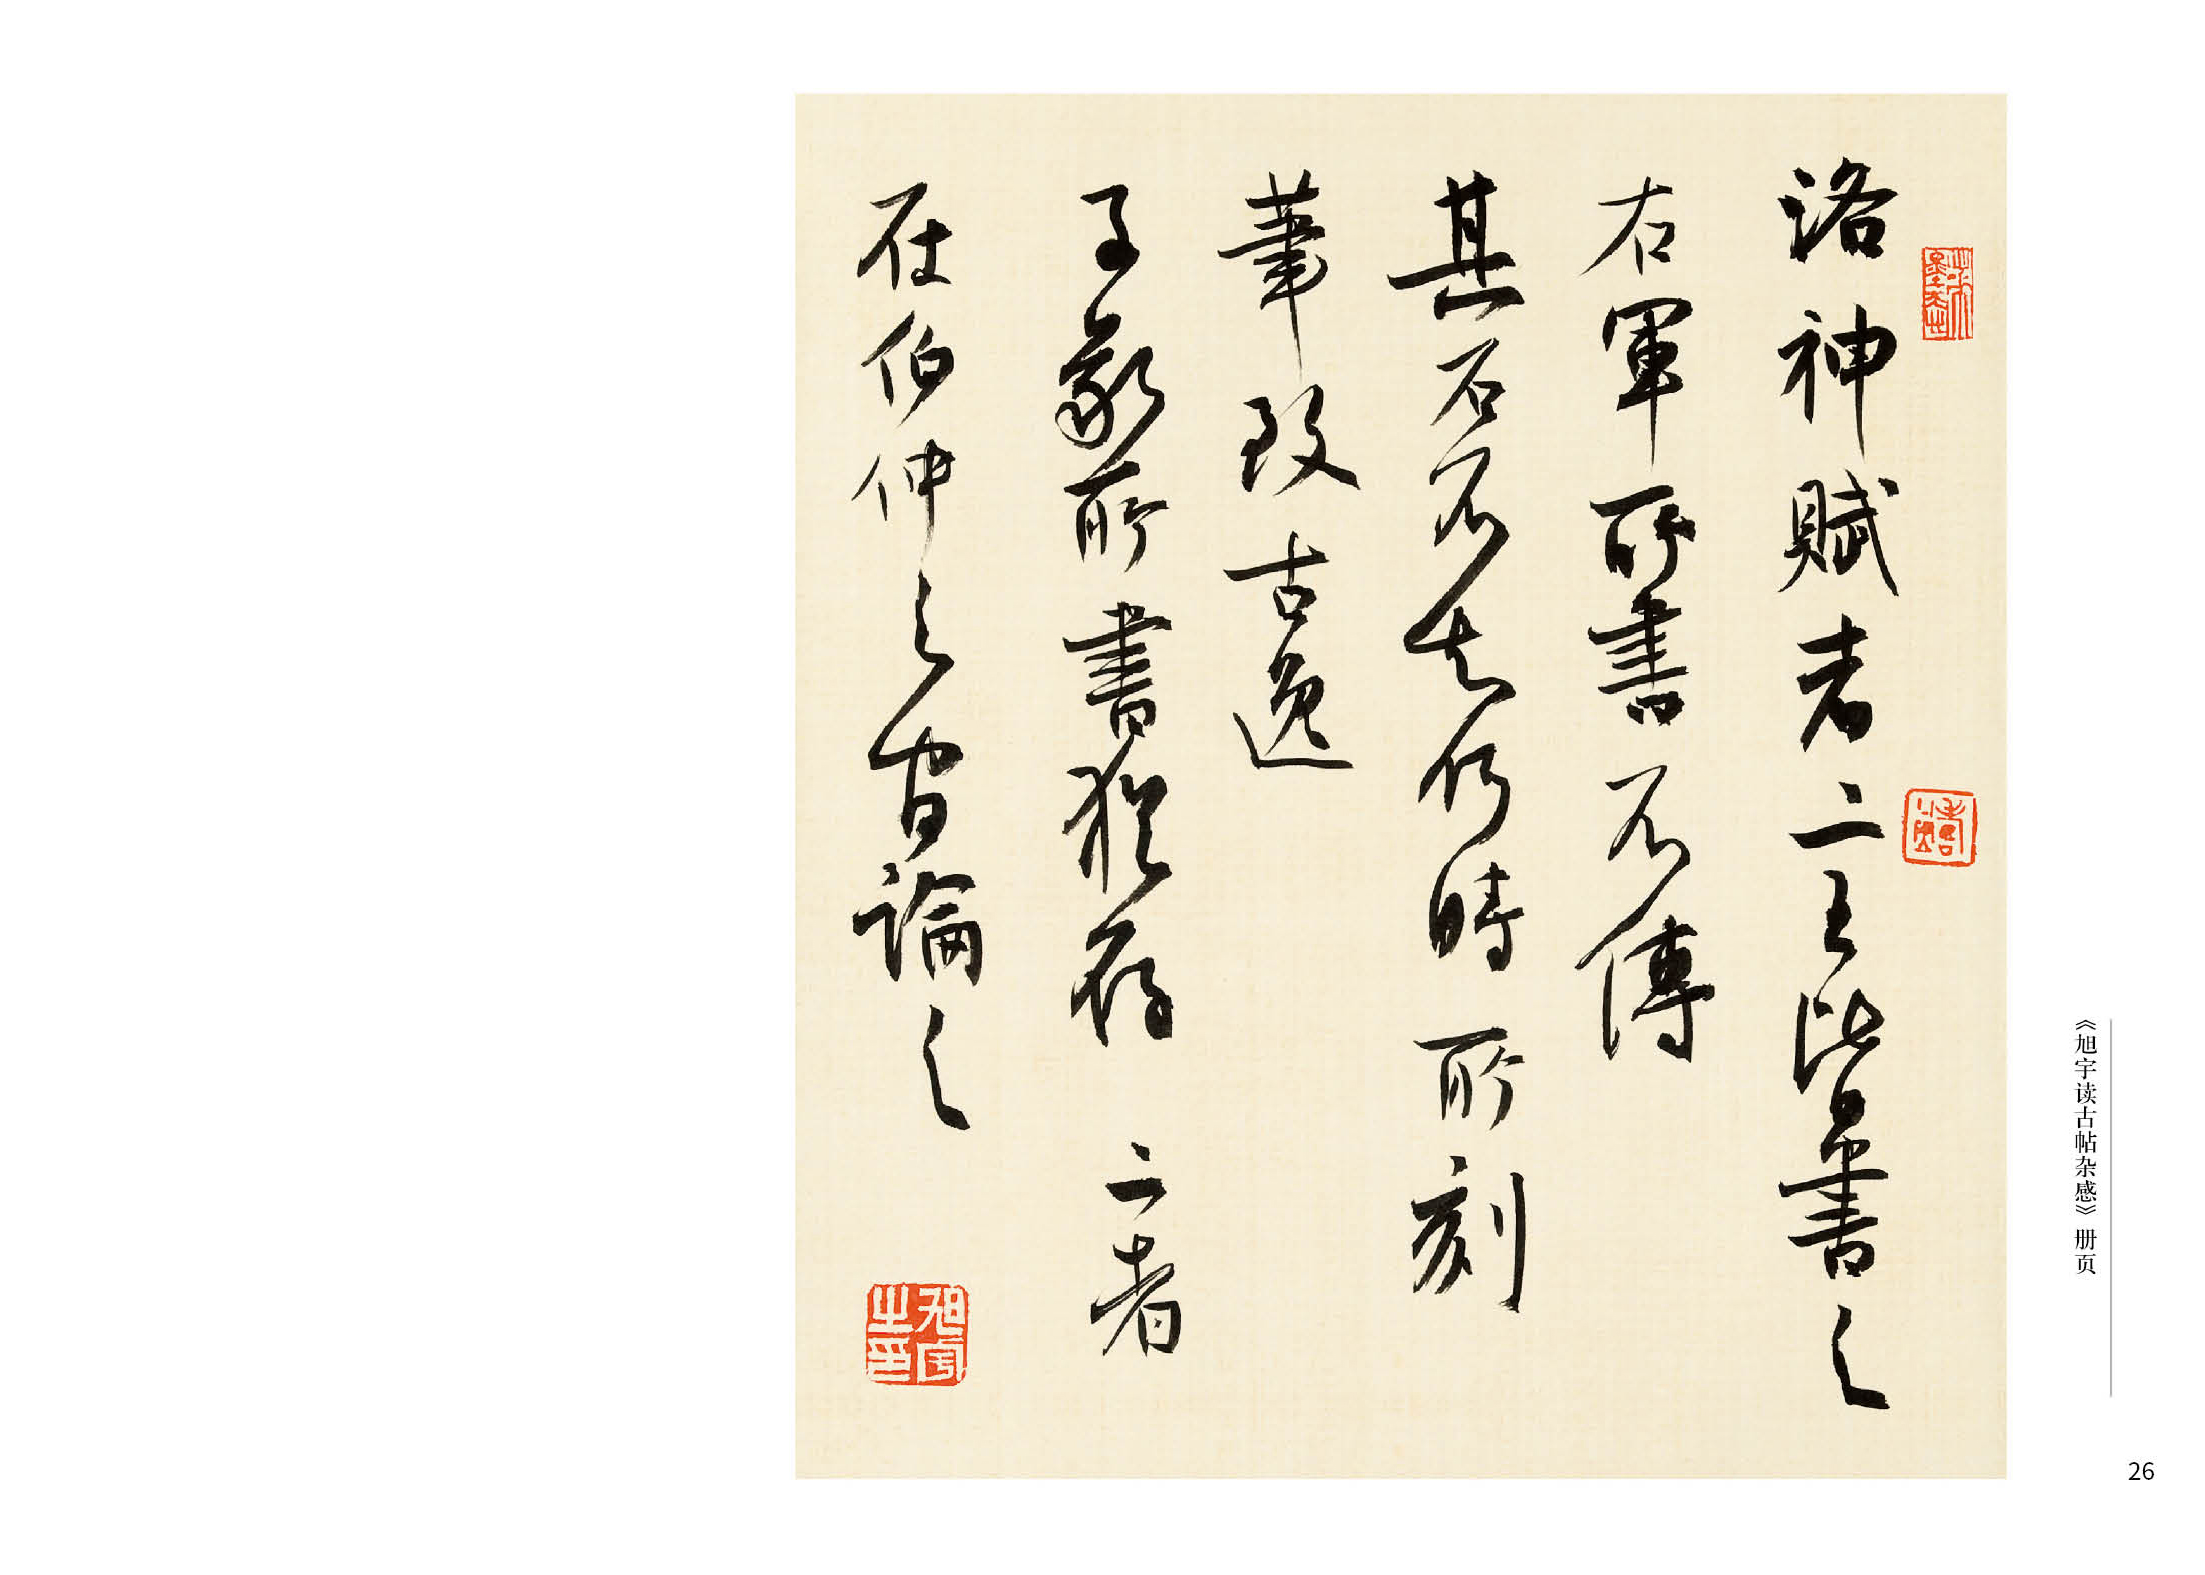 洛神賦者二王皆書之
右軍所書不傳
其石不知何時所刻
筆致古逸
子敬所書猶存二者
在伯仲之間論之
旭宇之印
《旭宇读古帖杂感》册页
26